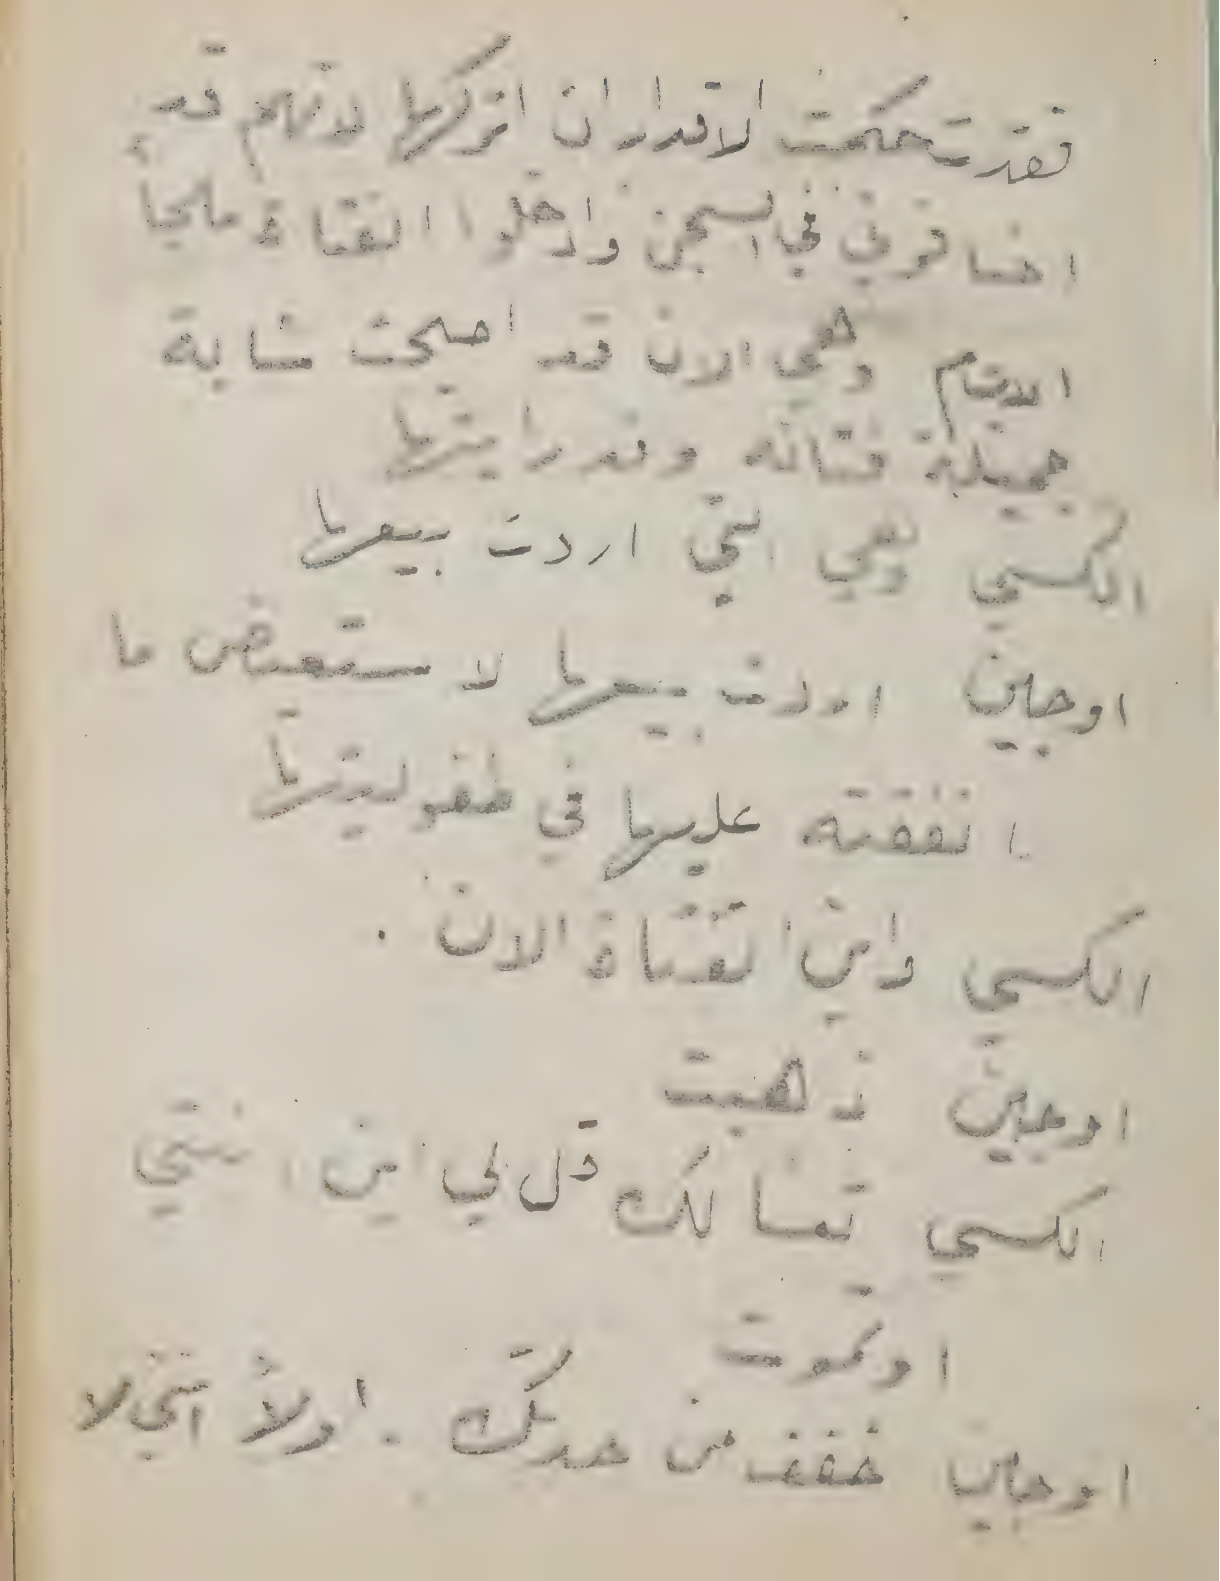 فقد تحكمت الاقدار ان اتركها لانهم قد
اخذوني في السجن وادخلوا الفتاة ملجأ
الايتام وهي الان قد اصبحت شابة
جميلة فتانه وقد رايتها
الكسي وهي التي اردت بيعها
اوجين اردت بيعها لاستعيض ما
انفقته عليها في طفوليتها
الكسي واين الفتاة الان .
اوجين ذهبت
الكسي تعسا لك قل لي اين ابنتي
او تموت
اوجين خفف من حدتك . اولاً انني لا